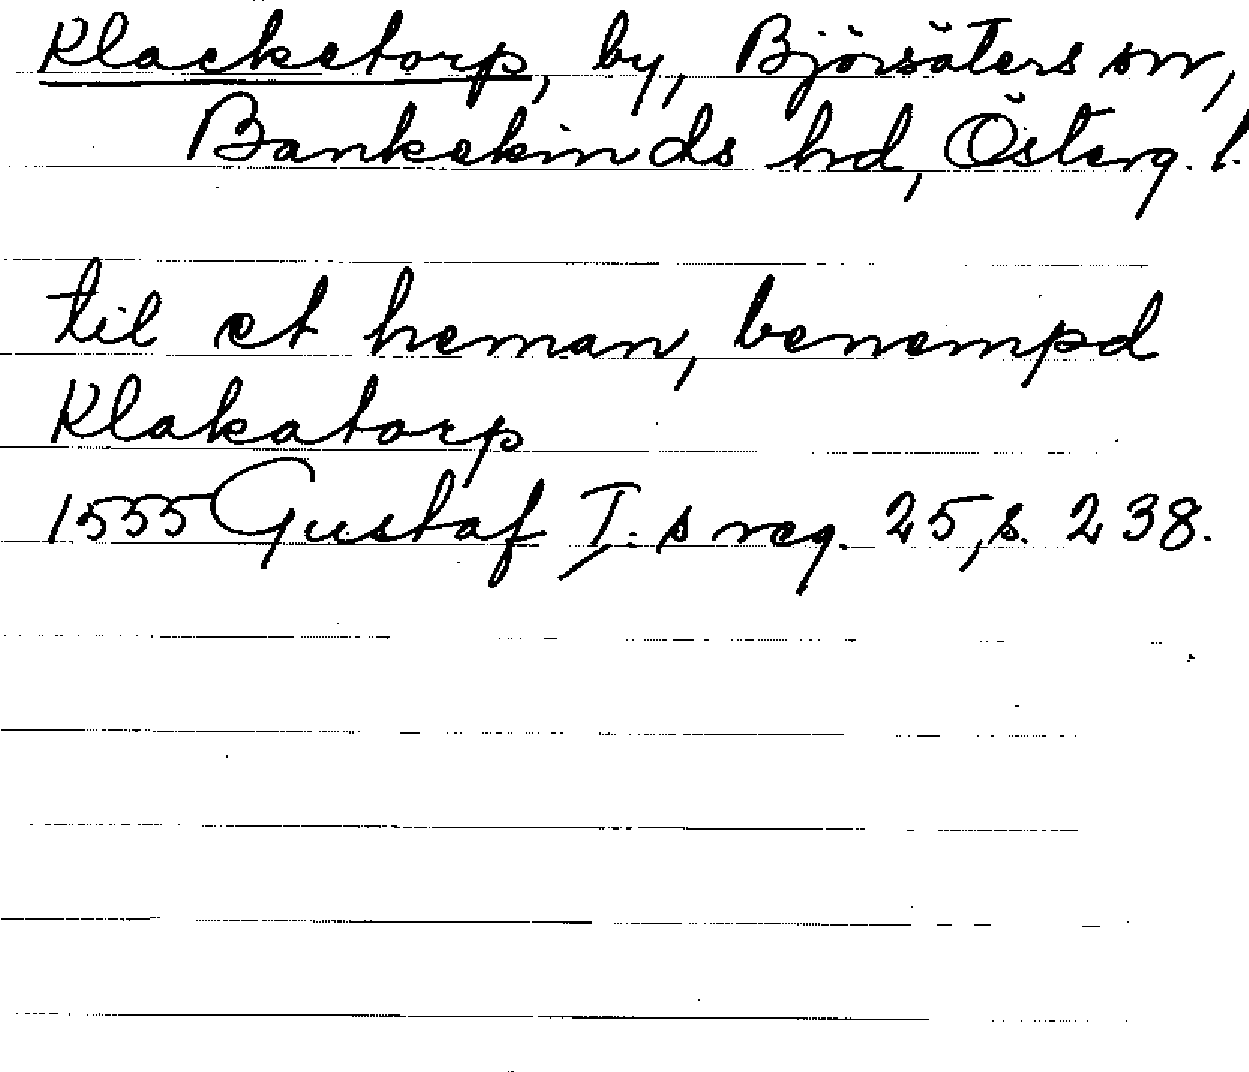 Klacketorp, by, Björsäters sn,
Bankekinds hd, Österg. l.
til et heman, benempd
Klakatorp
1555 Gustaf I:s reg. 25, s. 238.